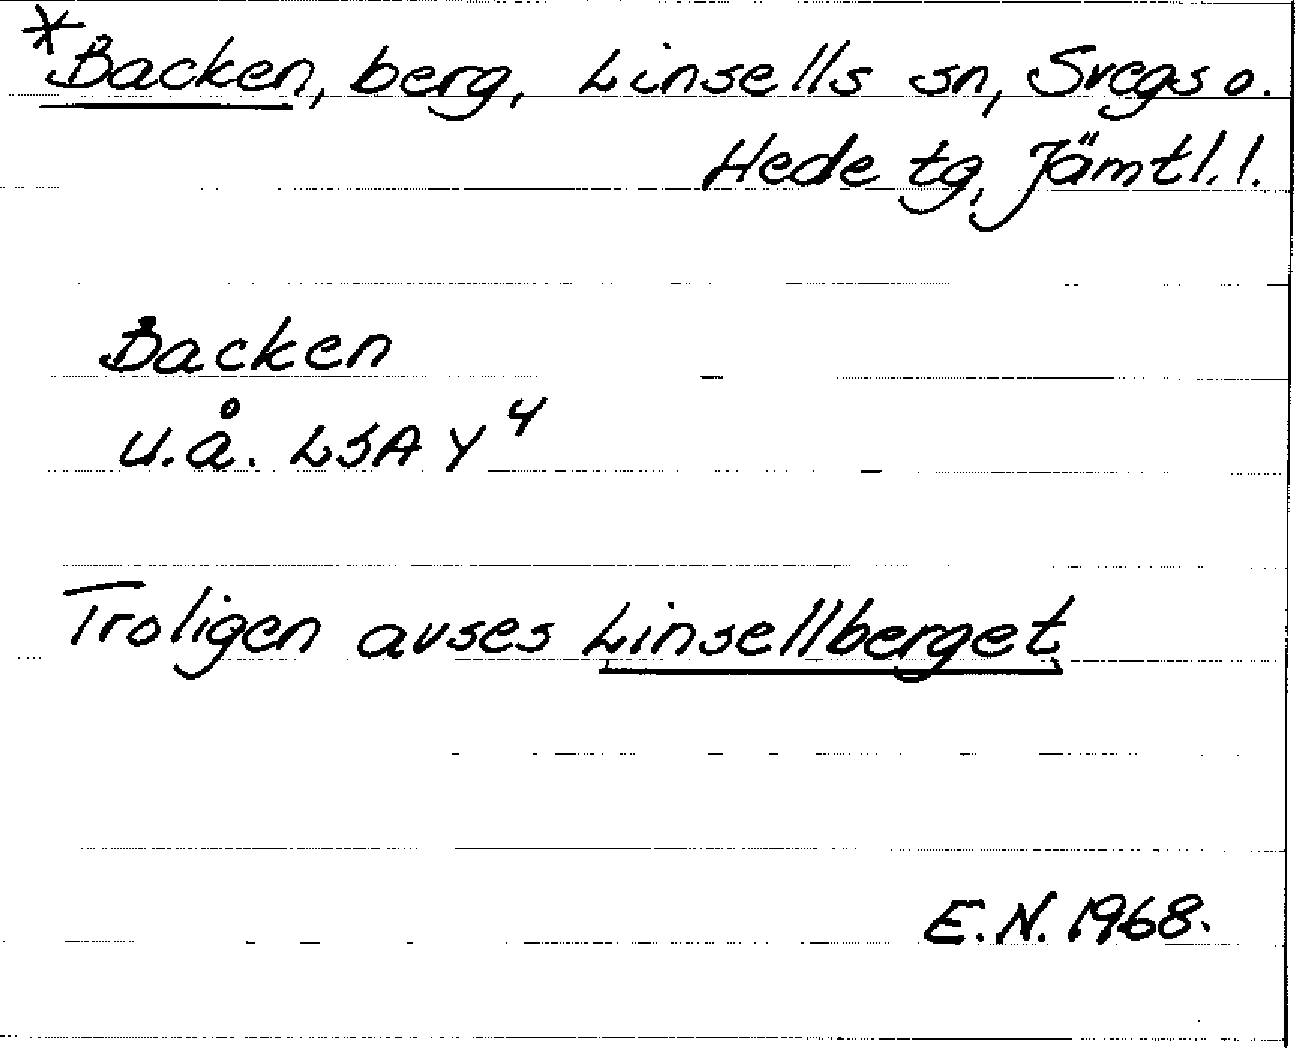 *Backen, berg, Linsells sn, Svegs o.
Hede tg, Jämtl. l.
Backen
u.å. LSA Y⁴
Troligen avses Linsellberget.
E.N. 1968.